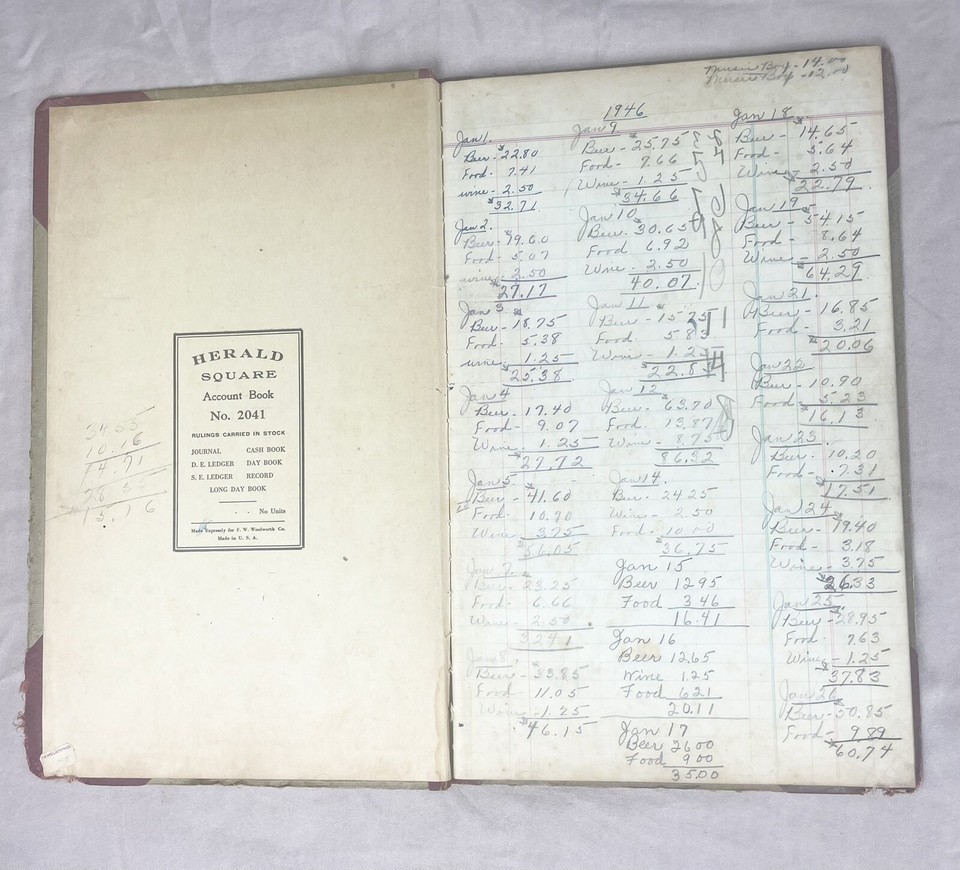 34.55
10.16
HERALD
SQUARE
Account Book
No. 2041
RULINGS CARRIED IN STOCK
JOURNAL CASH BOOK
D. E. LEDGER DAY BOOK
S. E. LEDGER RECORD
LONG DAY BOOK
No Units
Made Expressly for F. W. Woolworth Co.
Made in U. S. A.
Music Box - 14.00
Music Box - 12.00
1946
Jan 1.
Beer - $22.80
Food - 7.41
wine - 2.50
$32.71
Jan 2.
Beer - $19.60
Food - 5.07
wine - 2.50
$27.17
Jan 3.
Beer - 18.75
Food - 5.38
wine - 1.25
$25.38
Jan 4
Beer - 17.40
Food - 9.07
Wine - 1.25
$27.72
Jan 5.
Beer - $41.60
Food - 10.70
Wine - 3.75
$56.05
Jan 7.
Beer - $23.25
Food - 6.66
Wine - 2.50
32.41
Jan 8.
Beer - $33.85
Food - 11.05
Wine - 1.25
$46.15
Jan 9
Beer - $25.75
Food - 7.66
Wine - 1.25
$34.66
Jan 10
Beer - $30.65
Food 6.92
Wine - 2.50
40.07
Jan 11
Beer - 15.75
Food - 5.83
Wine - 1.25
$22.83
Jan 12
Beer - $63.70
Food - 13.87
Wine - 8.75
86.32
Jan 14.
Beer - 24.25
Wine - 2.50
Food - 10.00
$36.75
Jan 15
Beer 12.95
Food 3.46
16.41
Jan 16
Beer 12.65
Wine 1.25
Food 6.21
20.11
Jan 17
Beer 26.00
Food 9.00
35.00
Jan 18
Beer - $14.65
Food - 5.64
Wine - 2.50
$22.79
Jan 19
Beer - $54.15
Food - 8.64
Wine - 2.50
$64.29
Jan 21.
Beer - 16.85
Food - 3.21
$20.06
Jan 22
Beer - 10.90
Food - 5.23
$16.13
Jan 23.
Beer - 10.20
Food - 7.31
$17.51
Jan 24
Beer - 19.40
Food - 3.18
Wine - 3.75
$26.33
Jan 25
Beer - $28.95
Food - 7.63
Wine - 1.25
$37.83
Jan 26
Beer - $50.85
Food - 9.89
$60.74